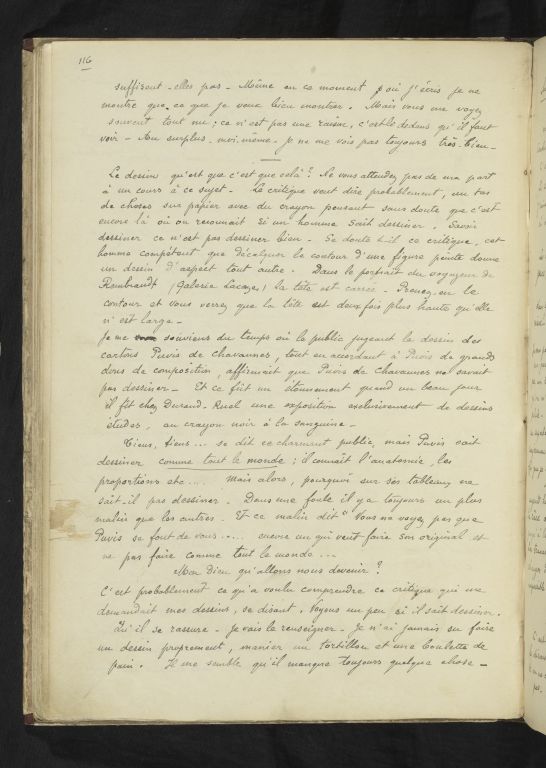 116
suffisent-elles pas - Même en ce moment où j'écris je ne
montre que ce que je veux bien montrer. Mais vous me voyez
souvent tout nu; ce n'est pas une raison, c'est le dedans qu'il faut
voir - Au surplus, moi-même, je ne me vois pas toujours très-bien -
Le dessin qu'est que c'est que celà? Ne vous attendez pas de ma part
à un cours à ce sujet - Le critique veut dire probablement, un tas
de choses sur papier avec du crayon pensant sans doute que c'est
encore là où on reconnait si un homme sait dessiner. Savoir
dessiner ce n'est pas dessiner bien - Se doute-t-il ce critique, cet
homme compétent que décalquer le contour d'une figure peinte donne
un dessin d'aspect tout autre - Dans le portrait du voyageur de
Rembrandt (galerie Lacaze) la tête est carrée - Prenez en le
contour et vous verrez que la tête est deux fois plus haute qu'elle
n'est large -
Je me souviens du temps où le public jugeant le dessin des
cartons Puvis de chavannes, tout en accordant à Puvis de grands
dons de composition, affirmait que Puvis de Chavannes ne savait
pas dessiner - Et ce fût un étonnement quand un beau jour
il fit chez Durand-Ruel une exposition exclusivement de dessins
études, au crayon noir à la sanguine -
Tiens, tiens... se dit ce charmant public, mais Puvis sait
dessiner comme tout le monde; il connaît l'anatomie, les
proportions etc.... Mais alors, pourquoi sur ses tableaux ne
sait-il pas dessiner. Dans une foule il y a toujours un plus
malin que les autres. Et ce malin dit "Vous ne voyez pas que
Puvis se fout de vous..... encore un qui veut faire son original et
ne pas faire comme tout le monde...
Mon Dieu qu'allons nous devenir?
C'est probablement ce qu'a voulu comprendre ce critique qui me
demandait mes dessins, se disant. Voyons un peu si il sait dessiner.
Qu'il se rassure - Je vais le renseigner - Je n'ai jamais su faire
un dessin proprement, manier un tortillon et une boulette de
pain. Il me semble qu'il manque toujours quelque chose -